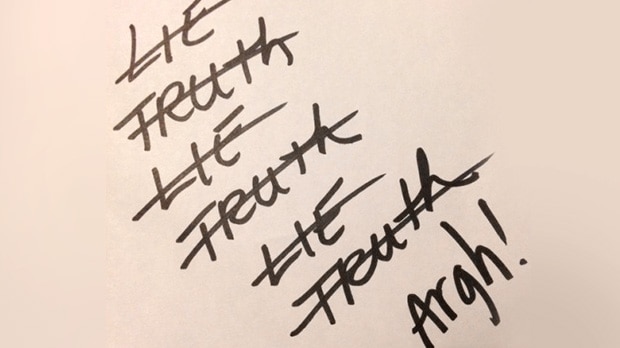 LIE
TRUTH
LIE
TRUTH
LIE
TRUTH
Argh!